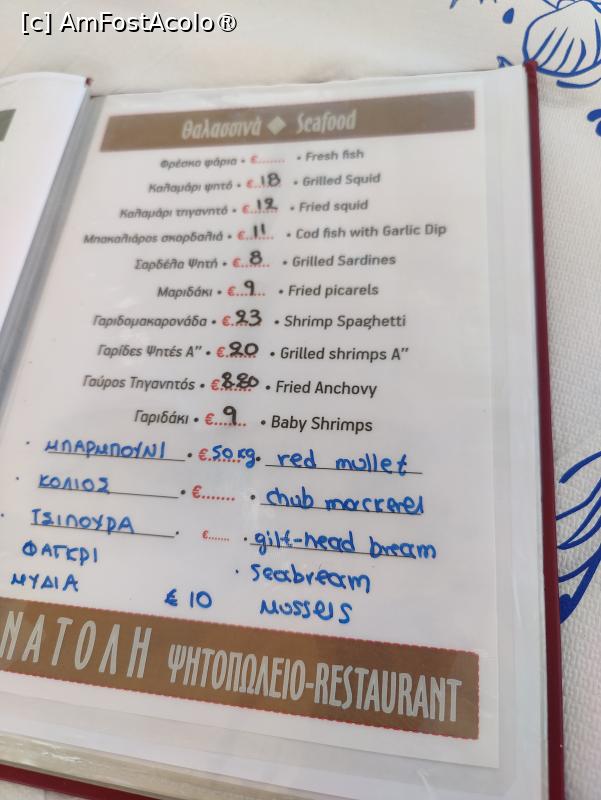 [c] AmFostAcolo®
Θαλασσινά ◆ Seafood
Φρέσκα ψάρια • €....... • Fresh fish
Καλαμάρι ψητό • €.18 • Grilled Squid
Καλαμάρι τηγανητό • €.12 • Fried squid
Μπακαλιάρος σκορδαλιά • €..11.. • Cod fish with Garlic Dip
Σαρδέλα Ψητή • €..8.. • Grilled Sardines
Μαριδάκι • €..9... • Fried picarels
Γαριδομακαρονάδα • €.23 • Shrimp Spaghetti
Γαρίδες Ψητές Α" • €.20 • Grilled shrimps A"
Γαύρος Τηγανητός • € • Fried Anchovy
Γαριδάκι • €..9.... • Baby Shrimps
ΜΠΑΡΜΠΟΥΝΙ • €.50 kg. • red mullet
ΚΟΛΙΟΣ • €....... • chub
ΤΣΙΠΟΥΡΑ • €....... • gilt-head bream
ΦΑΓΚΡΙ • Seabream
ΜΥΔΙΑ € 10 Mussels
ΝΑΤΟΛΗ ΨΗΤΟΠΩΛΕΙΟ-RESTAURANT